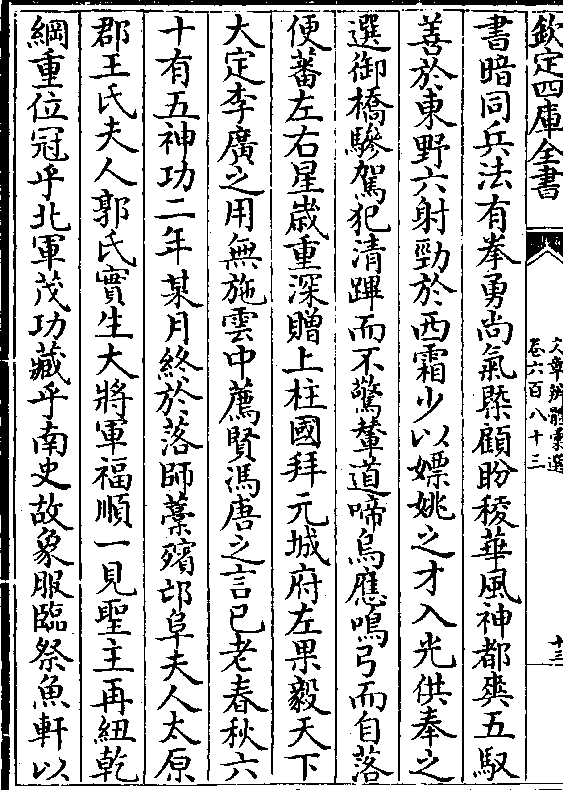 欽定四庫全書
文章辨體彙選
卷六百八十三
十三
書暗同兵法有拳勇尚氣槩顧盼稜華風神都爽五馭
善於東野六射勁於西霜少以嫖姚之才入光供奉之
選御橋驂駕犯清蹕而不驚輦道啼烏應鳴弓而自落
便蕃左右星歳重深贈上柱國拜元城府左果毅天下
大定李廣之用無施雲中薦賢馮唐之言已老春秋六
十有五神功二年某月終於落師藁殯邙阜夫人太原
郡王氏夫人郭氏實生大將軍福順一見聖主再紐乾
綱重位冠乎北軍茂功藏乎南史故象服臨祭魚軒以